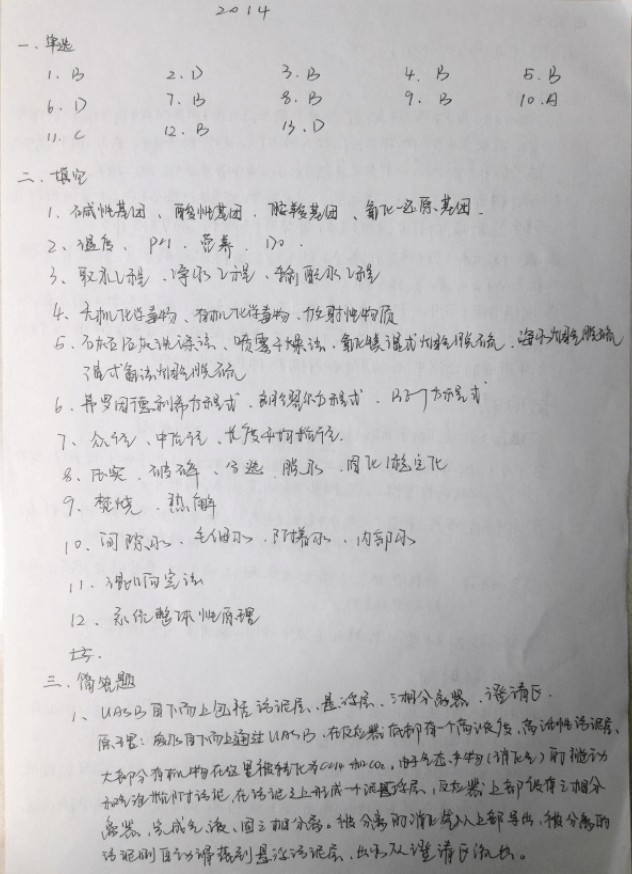 2014
一、单选
1. B 2. D 3. B 4. B 5. B
6. D 7. B 8. B 9. B 10. A
11. C 12. B 13. D
二、填空
1、碱性基团、酸性基团、胺羧基团、氧化-还原基团.
2、温度、PH、营养、Do.
3、取水工程、净水工程、输配水工程
4、无机化学毒物、有机化学毒物、放射性物质
5、石灰石灰洗涤法、喷雾干燥法、氧化镁湿式烟脱硫、海水烟脱硫
湿式氨法烟脱硫
6、弗罗因德利希方程式、朗缪尔方程式、BET方程式
7、众径、中位径、长度平均粒径.
8、压实、破碎、分选、脱水、固化/稳定化
9、焚烧、热解
10、间隙水、毛细水、吸附水、内部水
11、
12、系统整体性原理
三、简答题
1、UASB自下而上包括污泥层、悬浮层、三相分离器、澄清区.
原理：废水自下而上通过UASB，在反应器底部有一个高浓度、高活性污泥层，
大部分有机物在这里被转化为CH4和CO2，由于气态产物(消化气)的搅动
和气泡粘附污泥，在污泥之上形成一个污泥悬浮层，反应器上部设有三相分
离器，完成气、液、固三相分离。被分离的消化气从上部导出，被分离的
污泥则自动滑落到悬浮污泥层，出水从澄清区流出。